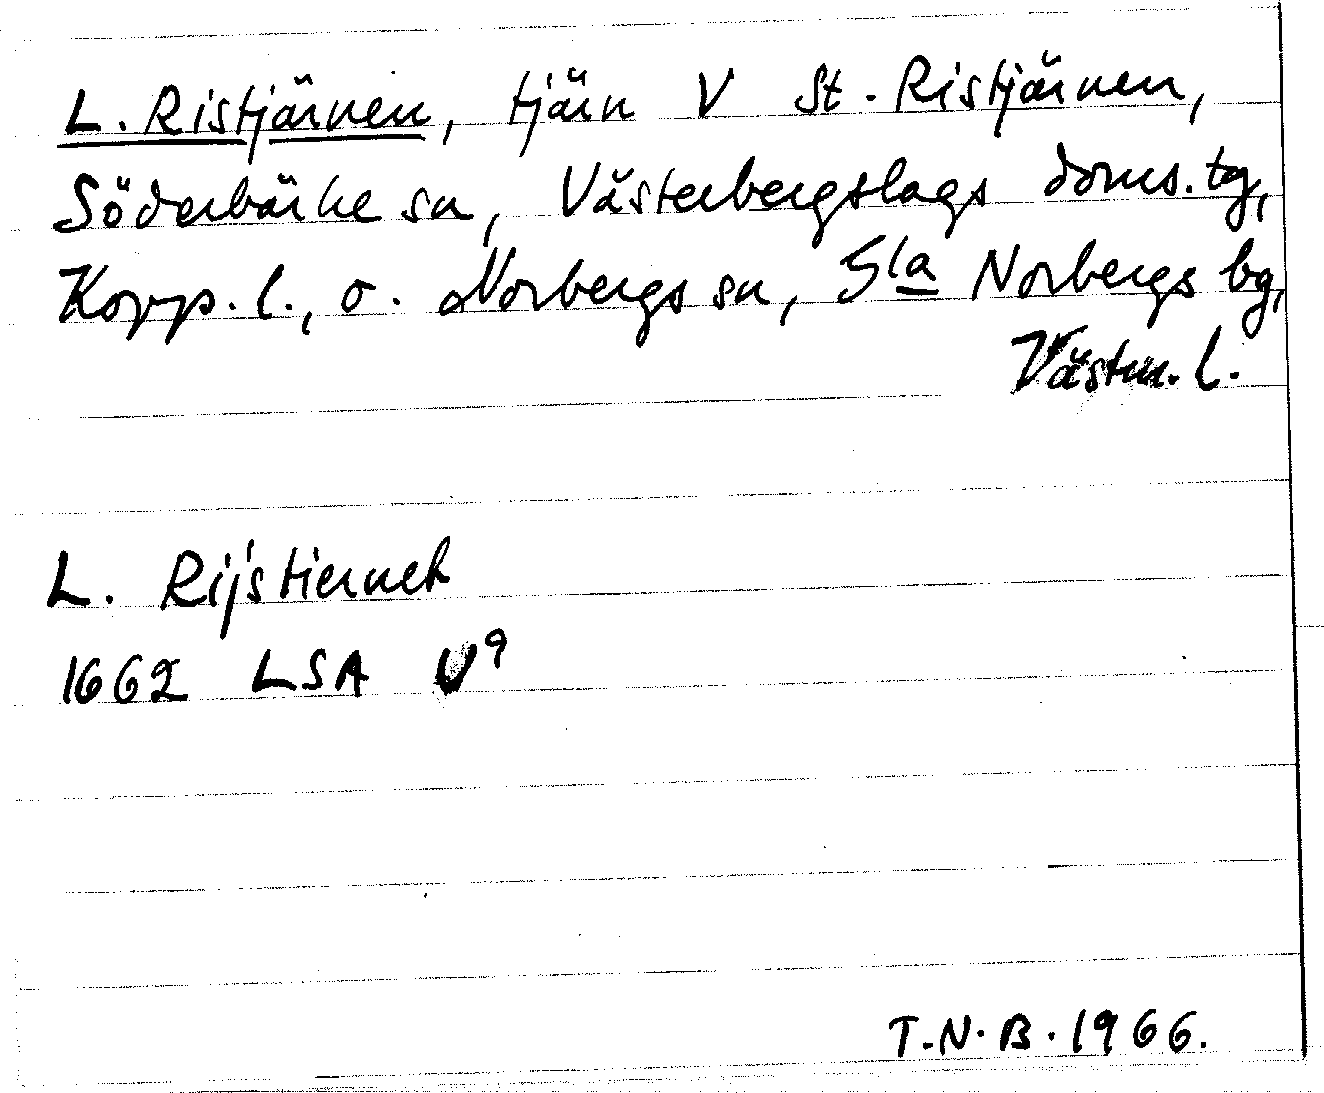 L. Ristjärnen, tjärn V St. Ristjärnen,
Söderbärke sn, Västerbergslags doms. tg,
Kopp. l., o. Norbergs sn, Gla Norbergs bg,
Västm. l.
L. Rijstiernet
1662 LSA U9
T.N.B. 1966.